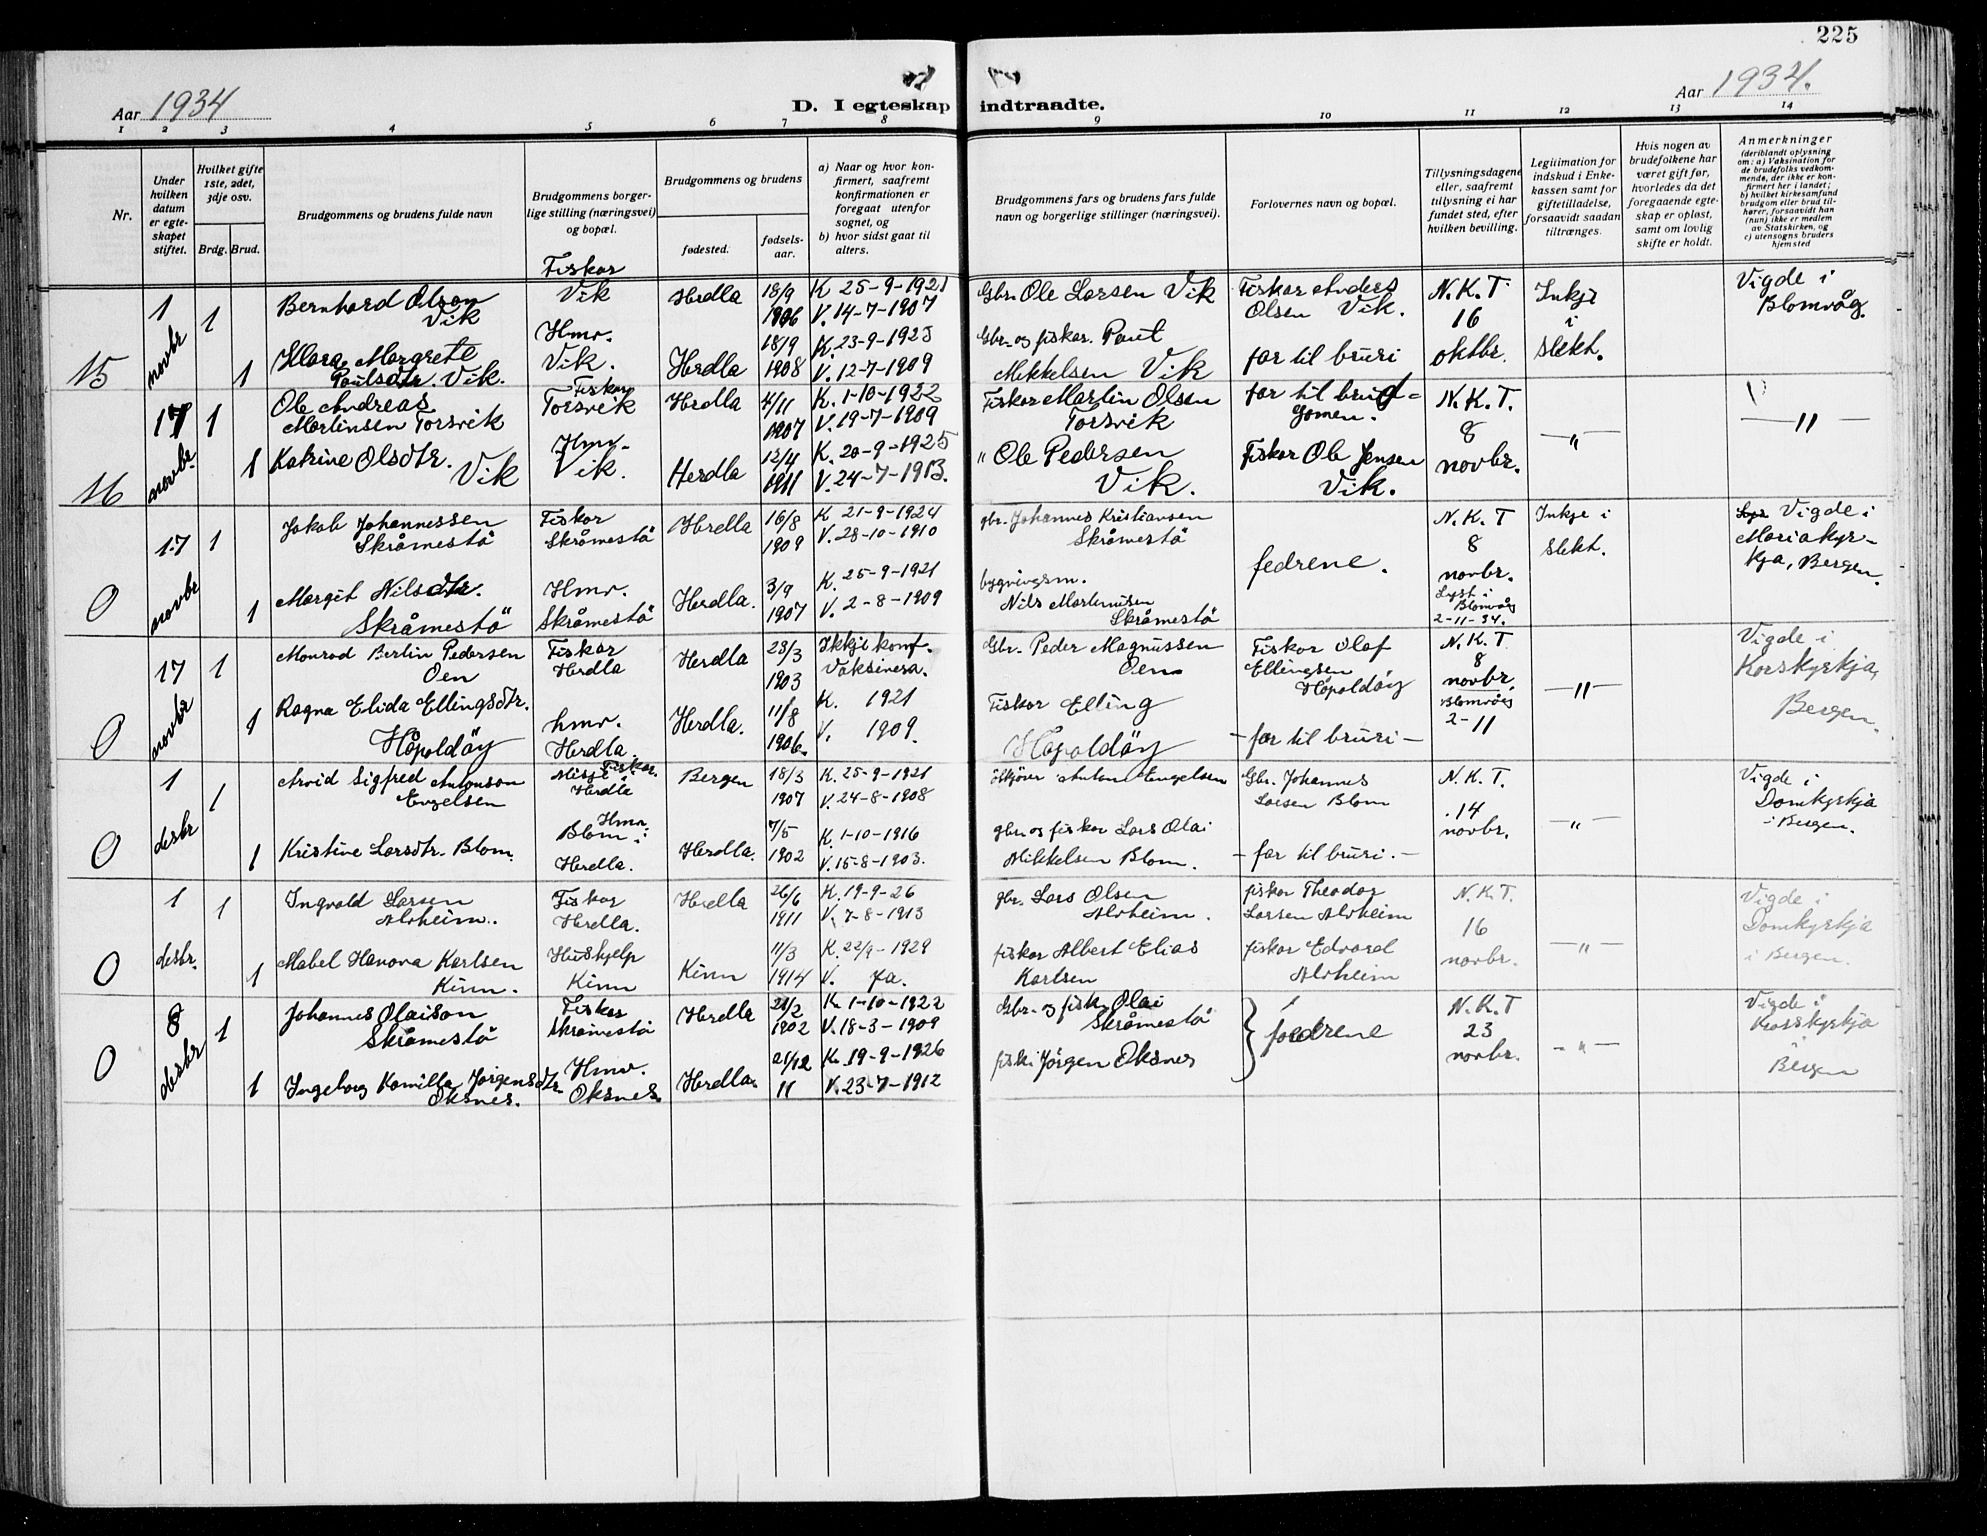 225
Aar 1934
D. I egteskap indtraadte.
Aar 1934.
1 2 3 4 5 6 7 8 9 10 11 12 13 14
Nr.
Under hvilken datum er egteskapet stiftet.
Hvilket gifte 1ste, 2det, 3dje osv.
Brdg. Brud.
Brudgommens og brudens fulde navn
Brudgommens borgerlige stilling (næringsvei) og bopæl.
Brudgommens og brudens
fødested.
fødselsaar.
a) Naar og hvor konfirmert, saafremt konfirmationen er foregaat utenfor sognet, og
b) hvor sidst gaat til alters.
Brudgommens fars og brudens fars fulde navn og borgerlige stillinger (næringsvei).
Forlovernes navn og bopæl.
Tillysningsdagene eller, saafremt tillysning ei har fundet sted, efter hvilken bevilling.
Legitimation for indskud i Enkekassen samt for giftetilladelse, forsaavidt saadan tiltrænges.
Hvis nogen av brudefolkene har været gift før, hvorledes da det foregaaende egteskap er opløst, samt om lovlig skifte er holdt.
Anmerkninger
(deriblandt oplysning om: a) Vaksination for de brudefolks vedkommende, der ikke er konfirmert her i landet; b) hvilket kirkesamfund brudgom eller brud tilhører, forsaavidt han (hun) ikke er medlem av Statskirken, og c) utensogns bruders hjemsted
15
1 novbr
1 Bernhard Olson Vik
Fiskar Vik
Herdla
18/9 1906
K 25-9-1921
V. 14-7-1907
Gbr. Ole Larsen Vik
Fiskar Anders Olsen Vik.
N.K.T. 16 oktbr.
Inkje i slekt.
Vigde i Blomvåg.
1 Klara Margrete Paulsdtr. Vik.
Hmv. Vik.
Herdla
18/9 1908
K. 23-9-1923
V. 12-7-1909
Gbr. og fiskar. Paul Mikkelsen Vik
far til bruri
16
17 novbr.
1 Ole Andreas Martinsen Torsvik
Fiskar Torsvik
Herdla
4/11 1907
K. 1-10-1922
V. 19-7-1909
Fiskar Martin Olsen Torsvik
far til brudgomen.
N.K.T. 8 novbr.
— " —
— " —
1 Katrine Olsdtr. Vik
Hmv. Vik.
Herdla
12/4 1911
K. 20-9-1925
V. 24-7-1913.
" Ole Pedersen Vik.
Fiskar Ole Jensen Vik.
0
17 novbr
1 Jakob Johannessen Skråmestö
Fiskar Skråmestö
Herdla
16/8 1909
K. 21-9-1924
V. 28-10-1910
gbr. Johannes Kristiansen Skråmestö
fedrene.
N.K.T 8 novbr.
Lyst i Blomvåg 2-11-34.
Inkje i slekt.
Vigde i Mariakyrkja, Bergen.
1 Margit Nilsdtr. Skråmestö
Hmv. Skråmestö
Herdla.
3/9 1907
K. 25-9-1921
V. 2-8-1909
bygningsm. Nils Martinusen Skråmestö
0
17 novbr
1 Monrad Berlin Pedersen Oen
Fiskar Herdla
Herdla
23/3 1903
Ikkje konf. Vaksinera.
Gbr. Peder Magnussen Oen
Fiskar Olaf Ellingsen Håpoldöy
N.K.T 8 novbr.
Blomvåg 2-11
— " —
Vigde i Korskyrkja, Bergen.
1 Ragna Elida Ellingsdtr. Håpoldöy
hmv. Herdla.
Herdla.
11/8 1906.
K. 1921
V. 1909.
Fiskar Elling Håpoldöy
— far til bruri —
0
1 desbr
1 Arvid Sigfred Antonson Engelsen
Misje Fiskar. Herdla
Bergen
18/3 1907
K. 25-9-1921
V. 24-8-1908
Anton Engelsen
Gbr. Johannes Larsen Blom
N.K.T. 14 novbr.
— " —
Vigde i Domkyrkja i Bergen.
1 Kristine Larsdtr. Blom.
Hmv. Blom: Herdla.
Herdla.
7/5 1902
K. 1-10-1916
V. 15-8-1903.
gbr og fiskar Lars Olai Mikkelsen Blom.
— far til bruri. —
0
1 desbr.
1 Ingvald Larsen Alvheim.
Fiskar Herdla.
Herdla
26/6 1911
K. 19-9-26
V. 7-8-1913
gbr. Lars Olsen Alvheim.
fiskar Theodor Larsen Alvheim
N.K.T. 16 novbr.
— " —
Vigde i Domkyrkja i Bergen.
1 Mabel Hanova Karlsen Kinn.
Hushjelp Kinn
Kinn
11/3 1914
K. 22/9-1929
V. Ja.
fiskar Albert Elias Karlsen
fiskar Edvard Alvheim
0
8 desbr
1 Johannes Olaison Skråmestö
Fiskar Skråmestö
Herdla
21/2 1902
K. 1-10-1922
V. 18-3-1909
Gbr. og fisk. Olai Skråmestö
fedrene
N.K.T 23 novbr.
— " —
Vigde i Korskyrkja Bergen
1 Ingeborg Kamilla Jørgensdtr. Oksnes.
Hmv. Oksnes.
Herdla.
21/12 11
K. 19-9-1926
V. 23-7-1912
fisk. Jörgen Oksnes